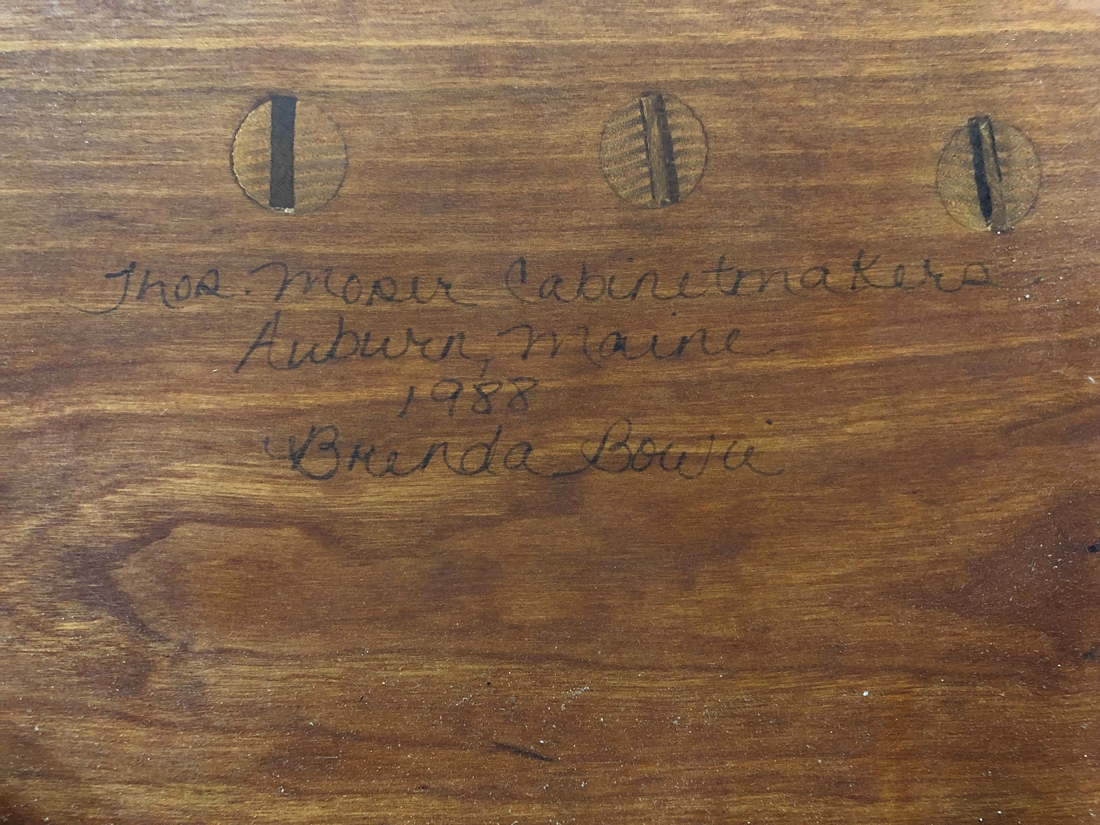 Thos. Moser Cabinetmakers.
Auburn, Maine
1988
Brenda Bowie